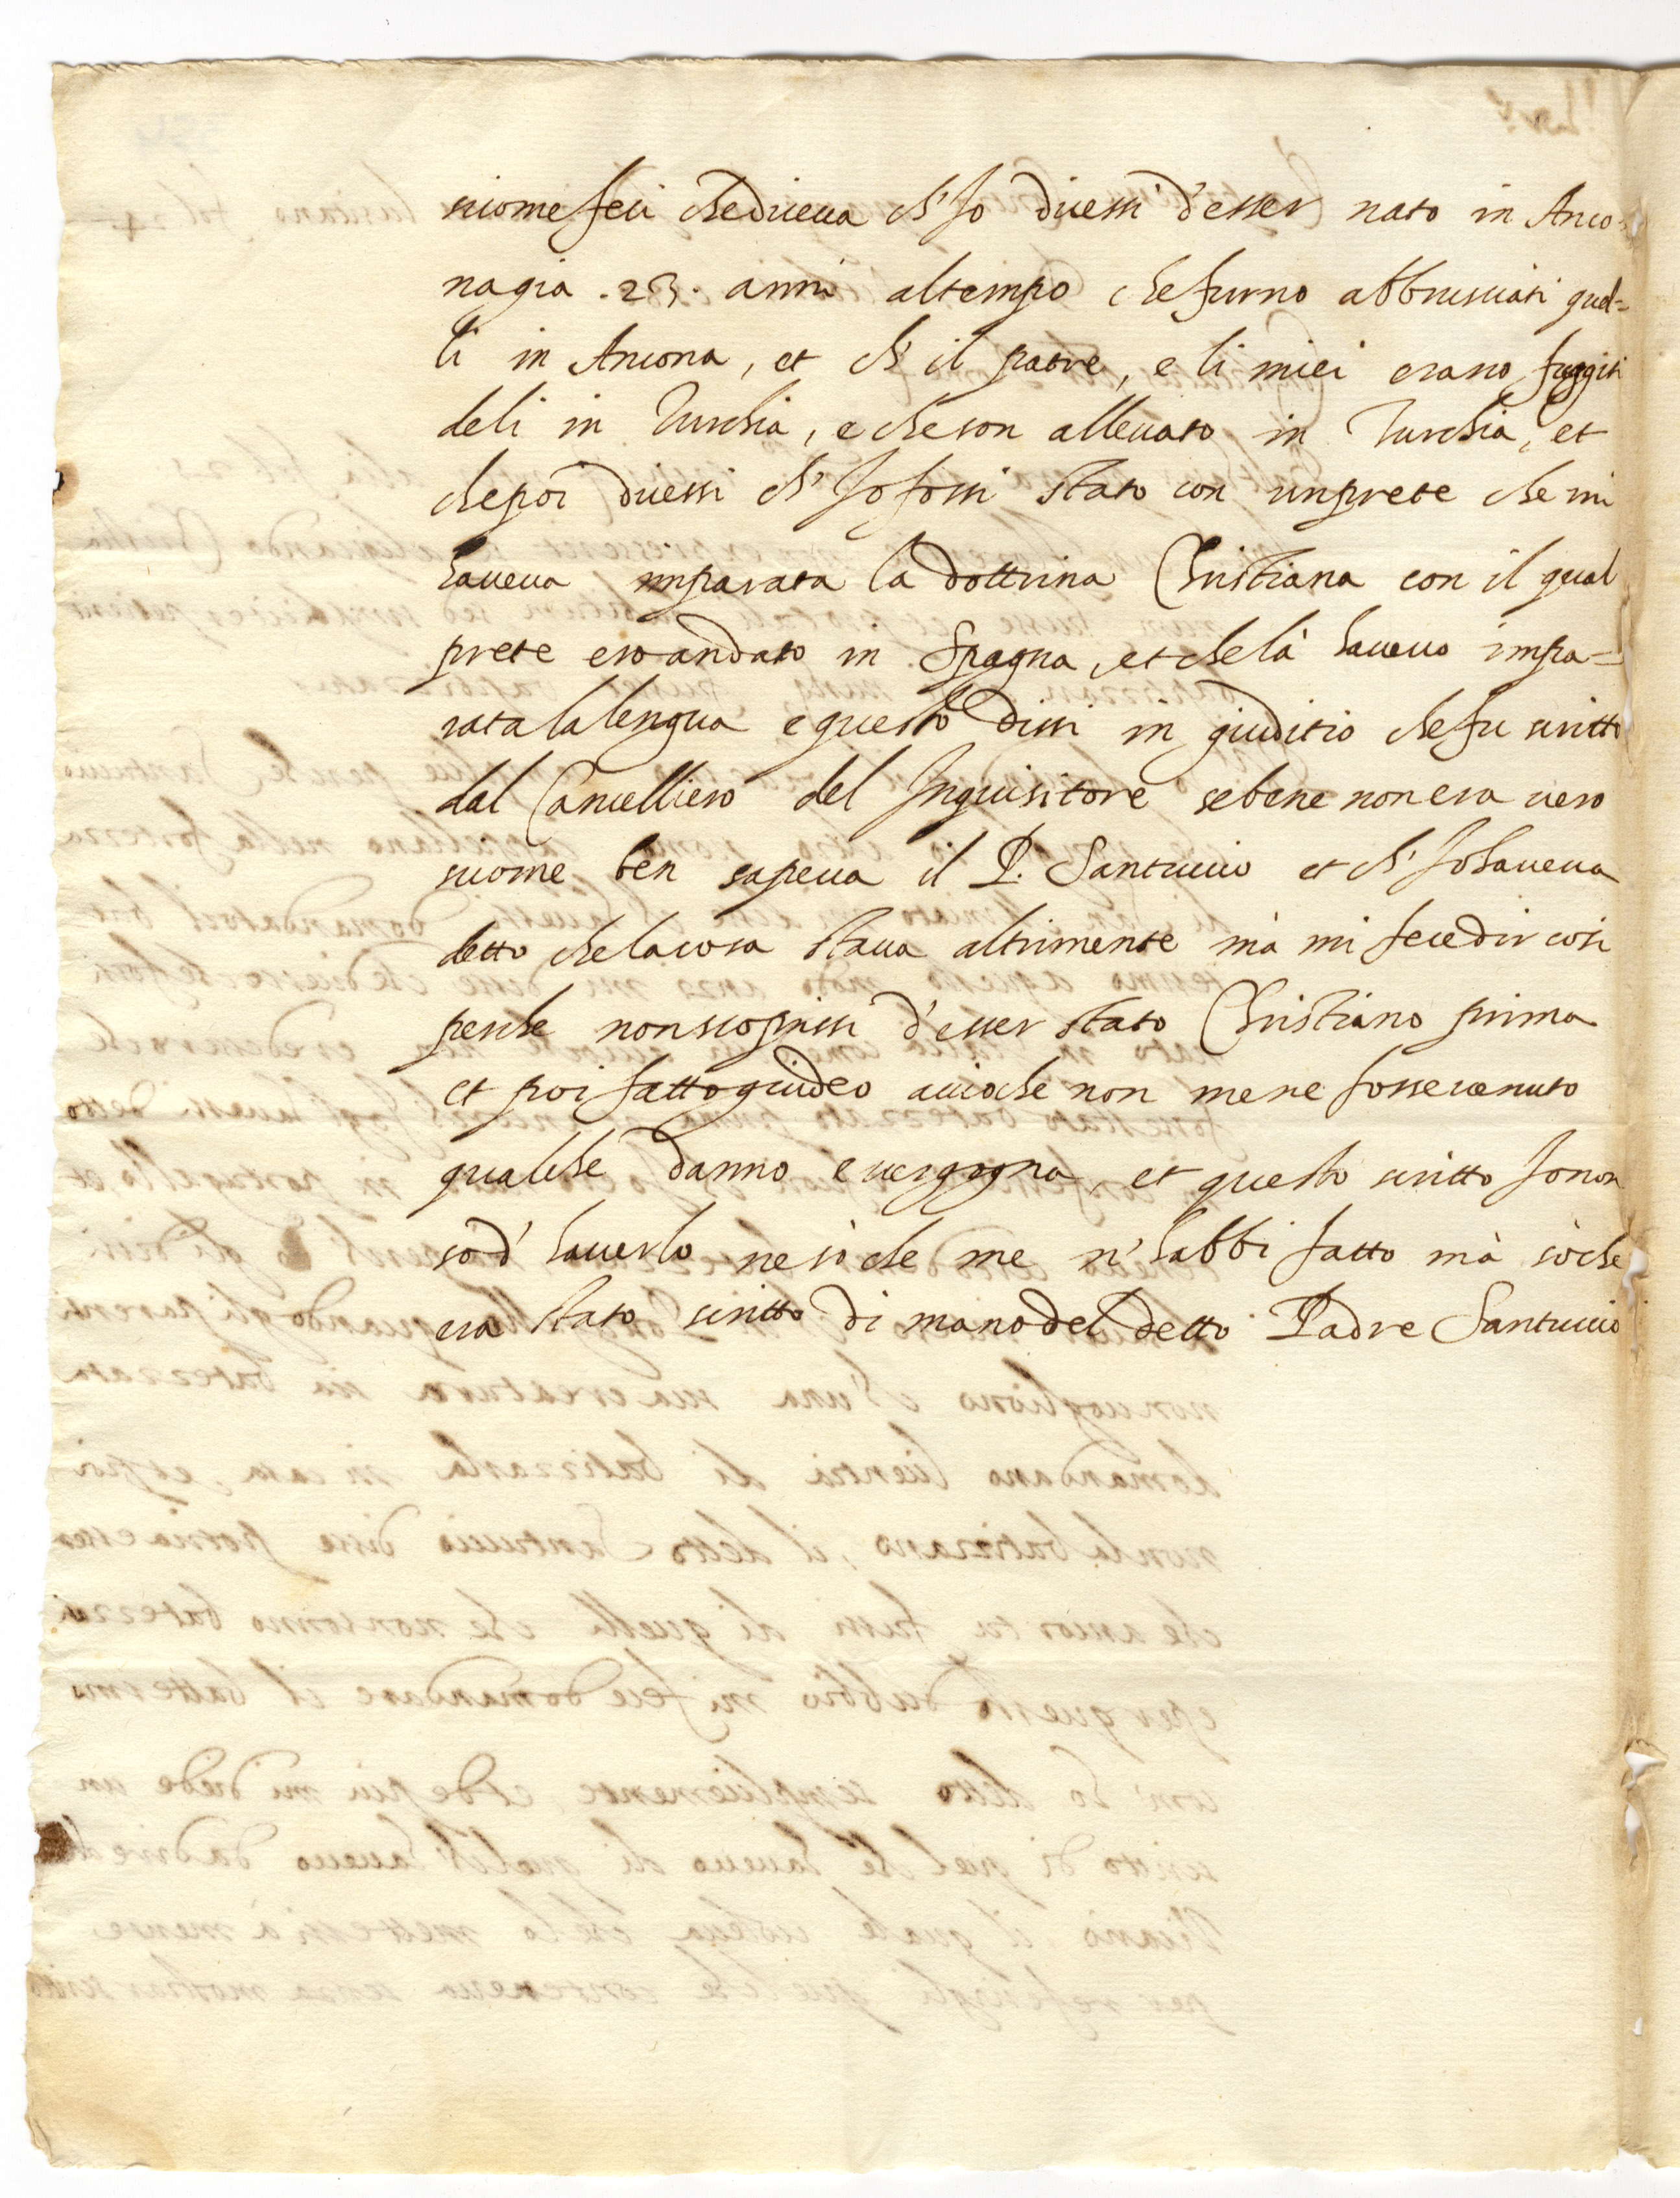 sicome feci che diceua ch'Io dicessi d'esser nato in Anco-
na gia .23. anni al tempo che furno abbrusciati quel-
li in Ancona, et ch'il patre, e li miei erano fuggiti
de lì in Turchia, e che son alleuato in Turchia, et
che poi dicessi ch'Io fossi stato con un prete che mi
haueua imparata la dottrina Christiana con il qual
prete ero andato in Spagna, et che là haueuo impa-
rata la lengua e questo dissi in giuditio che fu scritto
dal Cancelliero del Inquisitore se bene non era vero
sicome ben sapeua il P. Santuccio et ch'Io haueua
detto che la cosa staua altrimente mà mi fece dir cosi
perche non scoprissi d'esser stato Christiano prima
et poi fatto giudeo accioche non me ne fosse venuto
qualche danno e uergogna, et questo scritto Io non
so d'hauerlo ne sò che me n'habbi fatto mà sò che
era stato scritto di mano del detto Padre Santuccio